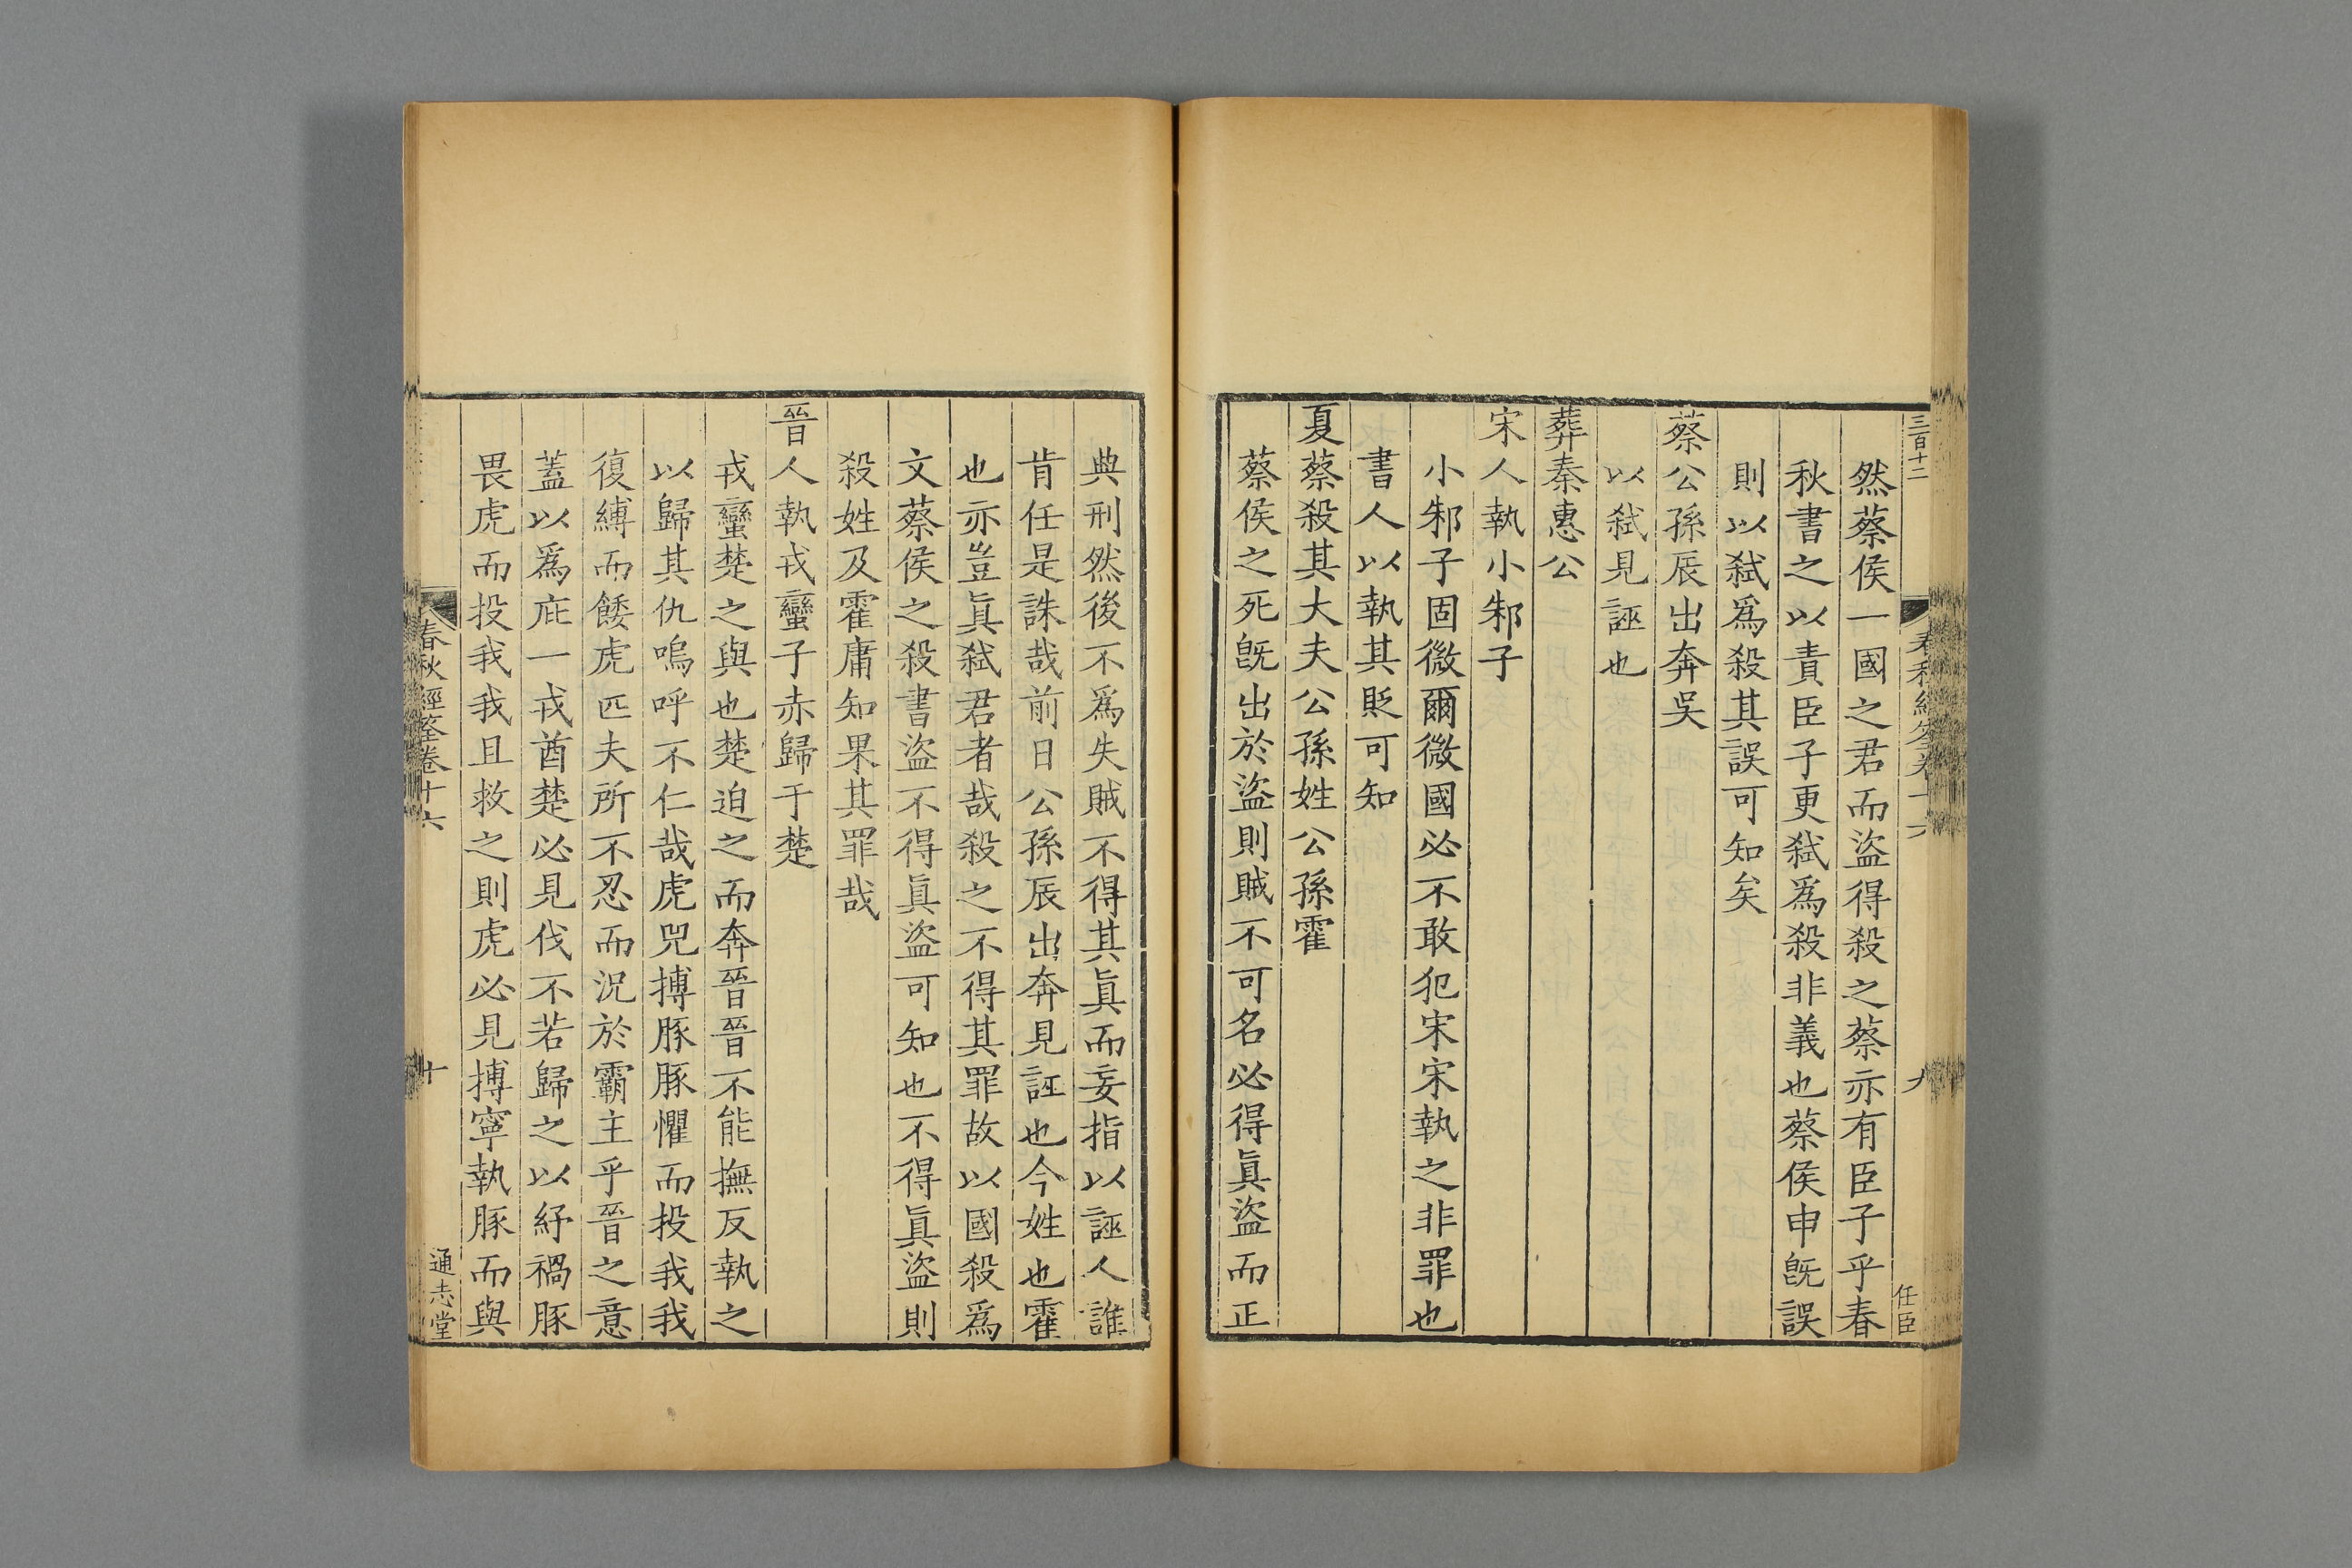 三百十二
春秋經筌卷十六
九
任臣
然蔡侯一國之君而盜得殺之蔡亦有臣子乎春
秋書之以責臣子更弒爲殺非義也蔡侯申旣誤
則以弒爲殺其誤可知矣
蔡公孫辰出奔吳
以弒見誣也
葬秦惠公
宋人執小邾子
小邾子固微爾微國必不敢犯宋宋執之非罪也
書人以執其貶可知
夏蔡殺其大夫公孫姓公孫霍
蔡侯之死旣出於盜則賊不可名必得眞盜而正
典刑然後不爲失賊不得其眞而妄指以誣人誰
肯任是誅哉前日公孫辰出奔見誣也今姓也霍
也亦豈眞弒君者哉殺之不得其罪故以國殺爲
文蔡侯之殺書盜不得眞盜可知也不得眞盜則
殺姓及霍庸知果其罪哉
晉人執戎蠻子赤歸于楚
戎蠻楚之與也楚迫之而奔晉晉不能撫反執之
以歸其仇嗚呼不仁哉虎兕搏豚豚懼而投我我
復縛而餧虎匹夫所不忍而況於霸主乎晉之意
蓋以爲庇一戎酋楚必見伐不若歸之以紓禍豚
畏虎而投我我且救之則虎必見搏寧執豚而與
春秋經筌卷十六
十
通志堂